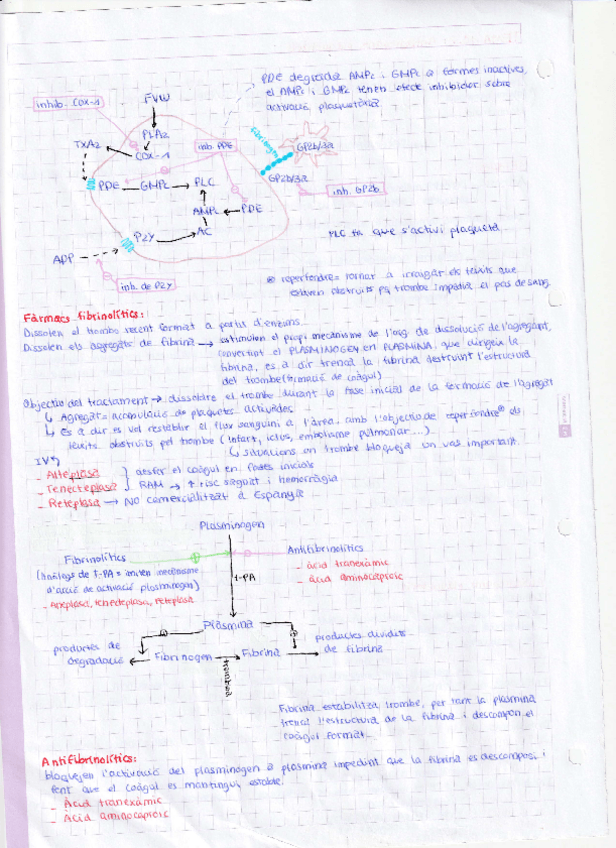 PDE degrada AMPc i GMPc a formes inactives,
el AMPc i GMPc tenen efecte inhibidor sobre
activació plaquetària
inhib. COX-1
FVW
PLA2
TXA2
COX-1
inh. PDE
fibrinogen
GP2b/3a
GP2b/3a
PDE
GMPc
PLC
inh. GP2b
AMPc
PDE
P2Y
AC
PLC fa que s'activi plaqueta
ADP
inh. de P2Y
⊛ reperfendre = tornar a irrigar els teixits que
estaven obstruïts pq trombe impedia el pas de sang
Fàrmacs fibrinolítics:
Dissolen el trombo recent format a partir d'enzims
Dissolen els agregats de fibrina → estimulen el propi mecanisme de l'org. de dissolució de l'agregant,
convertint el PLASMINOGEN en PLASMINA, que dirigeix la
fibrina, és a dir trenca la fibrina destruint l'estructura
del trombe (formació de coàgul)
Objectiu del tractament → dissoldre el trombe durant la fase inicial de la formació de l'agregat
↳ Agregat = acumulació de plaquetes activades
↳ és a dir es vol restablir el flux sanguini a l'àrea, amb l'objectiu de reperfendre⊛ els
teixits obstruïts pel trombe (infart, ictus, embolisme pulmonar...)
↳ situacions on trombe bloqueja un vas important.
IV
- Alteplasa
- Tenecteplasa
desfer el coàgul en fases inicials
RAM → ↑ risc sagnat i hemorràgia
- Reteplasa → NO comercialitzat a Espanya
Plasminogen
Fibrinolítics
(anàlegs de t-PA = imiten mecanisme
d'acció de activació plasminogen)
- Alteplasa, tenecteplasa, reteplasa
t-PA
Antifibrinolítics
- àcid tranexàmic
- àcid aminocaproic
Plasmina
productes de
degradació
Fibrinogen
Fibrina
productes dividits
de fibrina
trombina
Fibrina estabilitza trombe, per tant la plasmina
trenca l'estructura de la fibrina i descompon el
coàgul format
Antifibrinolítics:
bloquejen l'activació del plasminogen a plasmina impedint que la fibrina es descompos, i
fent que el coàgul es mantingui estable.
- Àcid tranexàmic
- Àcid aminocaproic